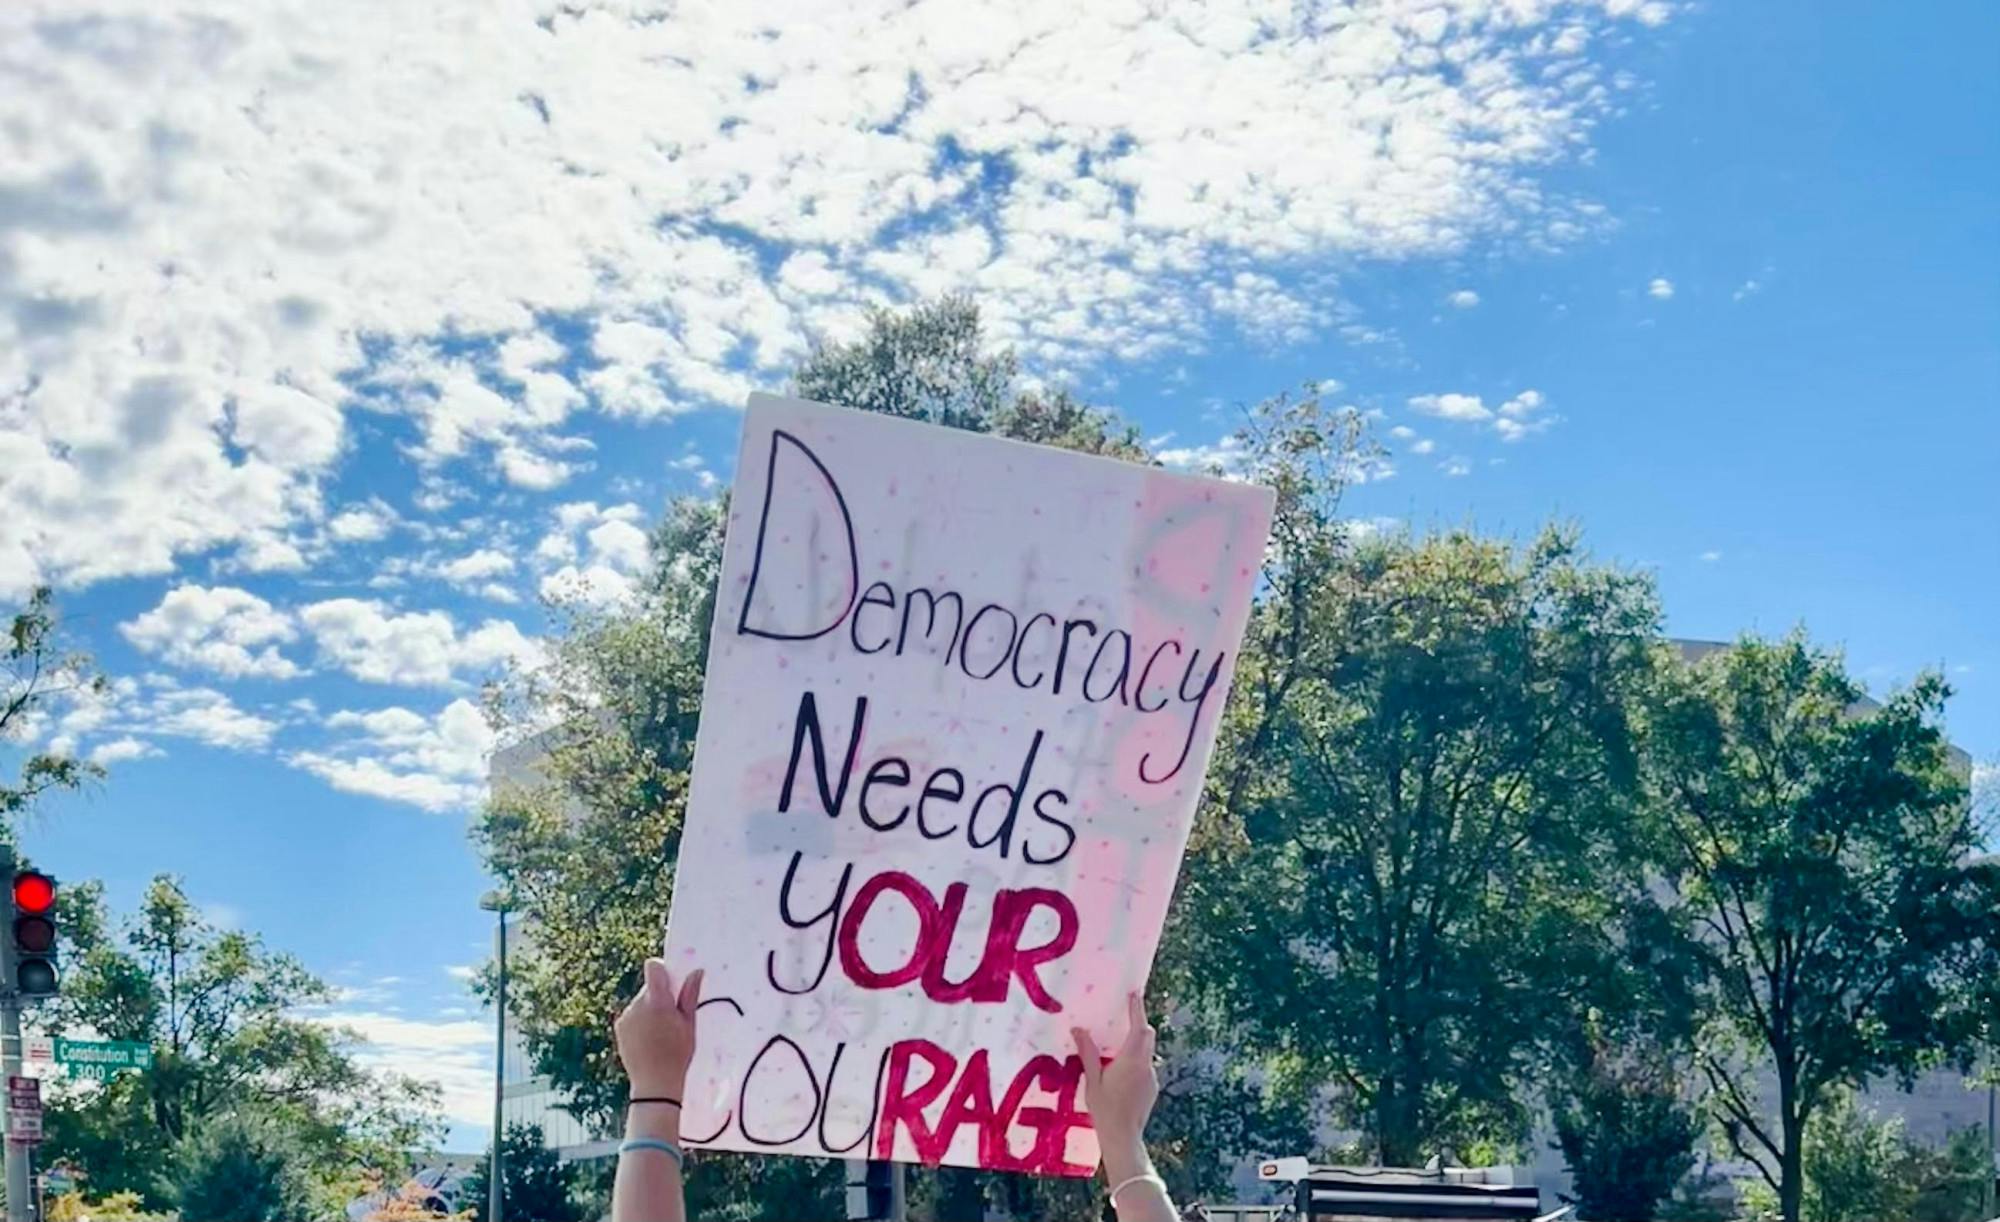 Democracy
Needs
yOUR
COURAGE
Constitution
300